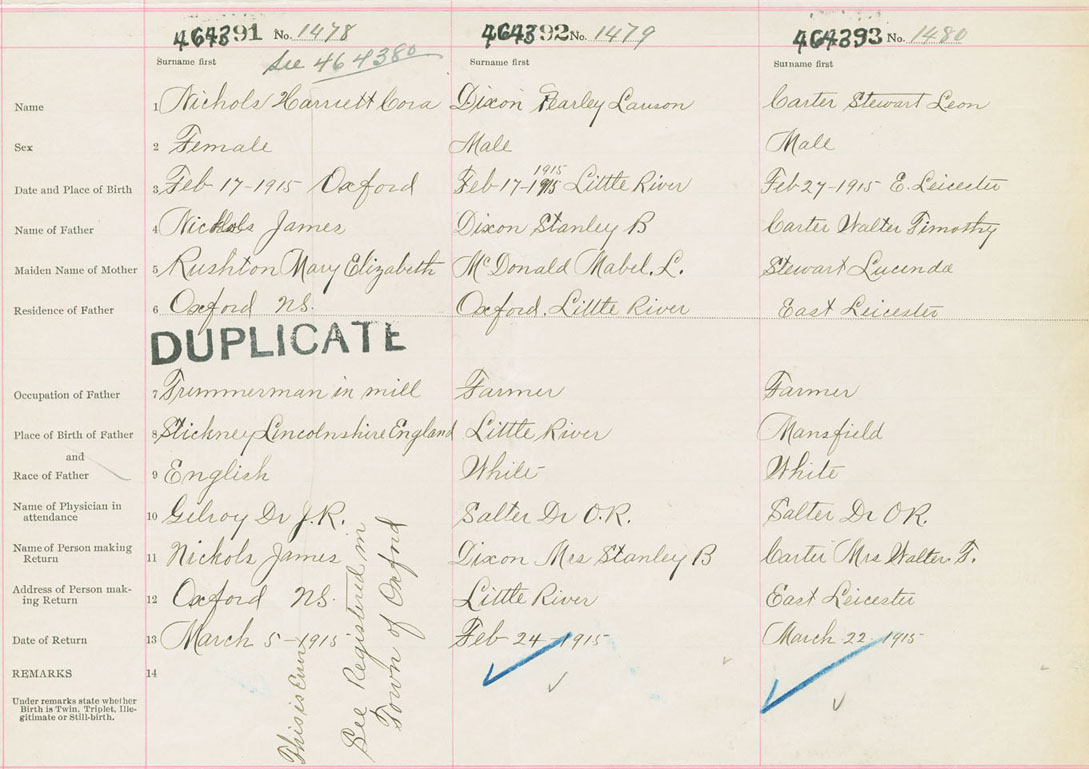 464391 No. 1478 464392 No. 1479 464393 No. 1480
See 464380
Surname first Surname first Surname first
Name 1 Nichols Harriett Cora Dixon Pearley Lauson Carter Stewart Leon
Sex 2 Female Male Male
1915
Date and Place of Birth 3 Feb 17-1915 Oxford Feb 17-1915 Little River Feb 27-1915 E. Leicester
Name of Father 4 Nichols James Dixon Stanley B Carter Walter Timothy
Maiden Name of Mother 5 Rushton Mary Elizabeth McDonald Mabel. L. Stewart Lucinda
Residence of Father 6 Oxford NS. Oxford. Little River East Leicester
DUPLICATE
Occupation of Father 7 Trimmerman in mill Farmer Farmer
Place of Birth of Father 8 Stickney Lincolnshire England Little River Mansfield
and
Race of Father 9 English White White
Name of Physician in
attendance 10 Gilroy Dr J.R. Salter Dr O.R. Salter Dr OR.
Name of Person making
Return 11 Nickols James Dixon Mrs Stanley B Carter Mrs Walter. T.
Address of Person mak-
ing Return 12 Oxford NS. Little River East Leicester
Date of Return 13 March 5-1915 Feb 24-1915 March 22-1915
REMARKS 14
Under remarks state whether
Birth is Twin, Triplet, Ille-
gitimate or Still-birth.
This is
See Registered in
Town of Oxford